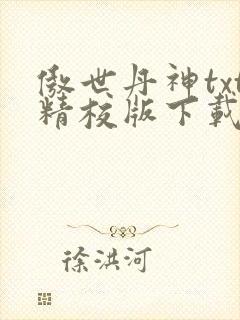 傲世丹神txt
精校版下载
徐洪河